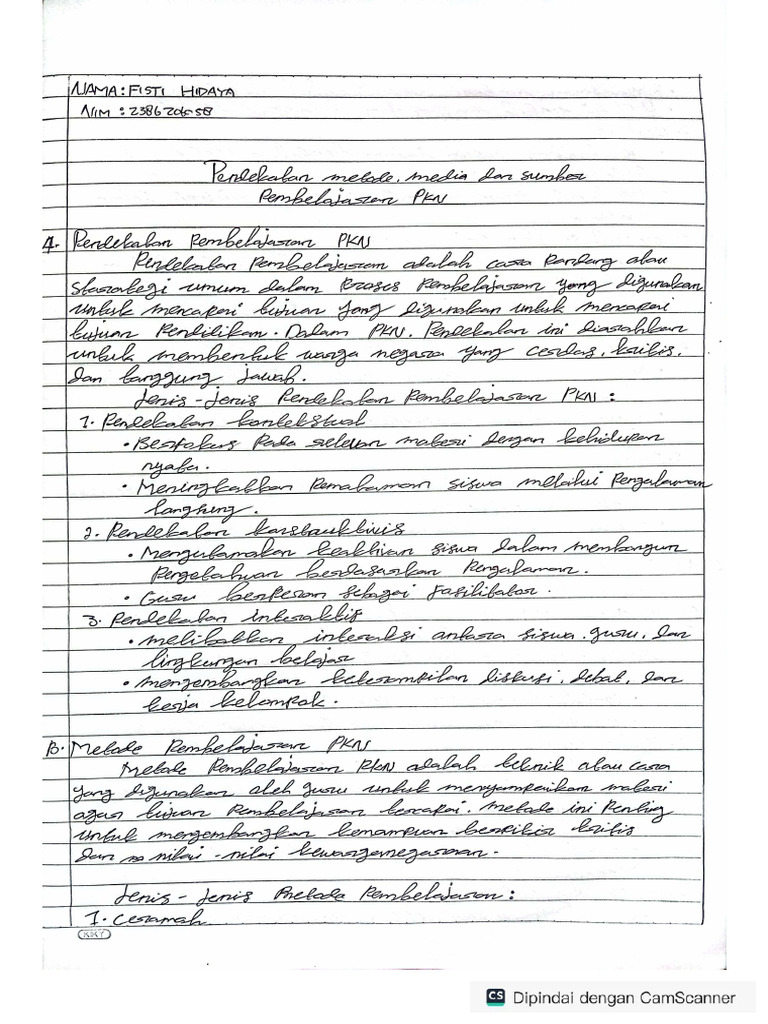 NAMA : FISTI HIDAYA
NIM : 2386206058
Pendekatan metode, media dan sumber
Pembelajaran PKN
A. Pendekatan Pembelajaran PKN
Pendekatan Pembelajaran adalah cara Pandang atau
Starategi umum dalam Proses Pembelajaran yang digunakan
untuk mencapai tujuan yang digunakan untuk mencapai
tujuan Pendidikan. Dalam PKN, Pendekatan ini diarahkan
untuk membentuk warga negara yang cerdas, kritis,
dan tanggung jawab.
Jenis-jenis Pendekatan Pembelajaran PKN :
1. Pendekatan kontekstual
• Berfokus Pada relevan materi dengan kehidupan
nyata.
• Meningkatkan Pemahaman siswa melalui Pengalaman
langsung.
2. Pendekatan konstruktivis
• Mengutamakan keaktivan siswa dalam membangun
Pengetahuan berdasarkan Pengalaman.
• Guru berperan sebagai fasilitator.
3. Pendekatan interaktif
• melibatkan interaksi antara siswa, guru, dan
lingkungan belajar
• mengembangkan keterampilan diskusi, debat, dan
kerja kelompok.
B. Metode Pembelajaran PKN
Metode Pembelajaran PKN adalah teknik atau cara
yang digunakan oleh guru untuk menyampaikan materi
agar tujuan Pembelajaran tercapai. metode ini Penting
untuk mengembangkan kemampuan berpikir kritis
dan nilai-nilai kewarganegaraan.
Jenis-jenis Metode Pembelajaran :
1. ceramah
KKY
CS Dipindai dengan CamScanner